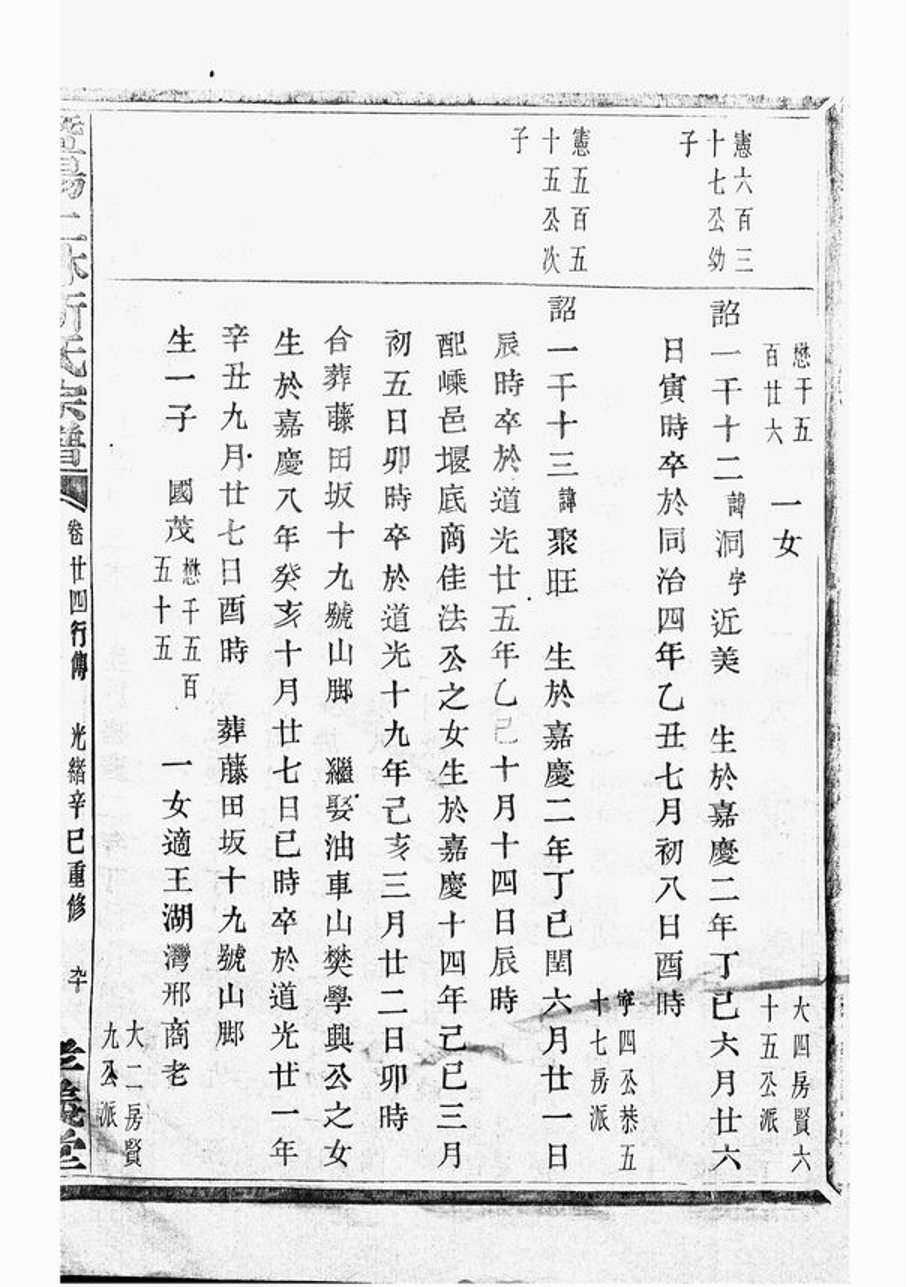 懋千五
百廿六
一女
大四房賢六
十五公派
憲六百三
十七公幼
子
詔一千十二諱洞字近美 生於嘉慶二年丁巳六月廿六
日寅時卒於同治四年乙丑七月初八日酉時
寧四公恭五
十七房派
憲五百五
十五公次
子
詔一千十三諱聚旺 生於嘉慶二年丁巳閏六月廿一日
辰時卒於道光廿五年乙巳十月十四日辰時
配嵊邑堰底商佳法公之女生於嘉慶十四年己巳三月
初五日卯時卒於道光十九年己亥三月廿二日卯時
合葬藤田坂十九號山脚 繼娶油車山樊學興公之女
生於嘉慶八年癸亥十月廿七日巳時卒於道光廿一年
辛丑九月廿七日酉時 葬藤田坂十九號山脚
生一子 國茂懋千五百五十五 一女適王湖灣邢商老
大二房賢
九公派
暨陽上林斯氏宗譜 卷廿四行傳 光緒辛巳重修 九十 孝義堂